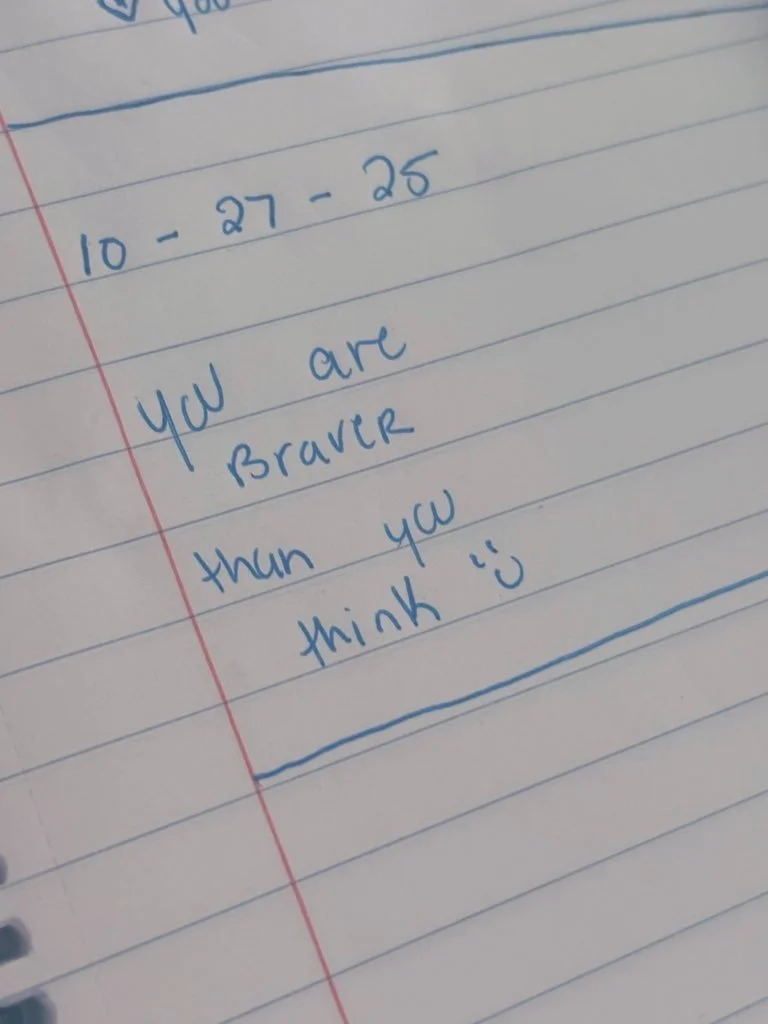 you
10 - 27 - 25
you are
BraveR
than you
think :)